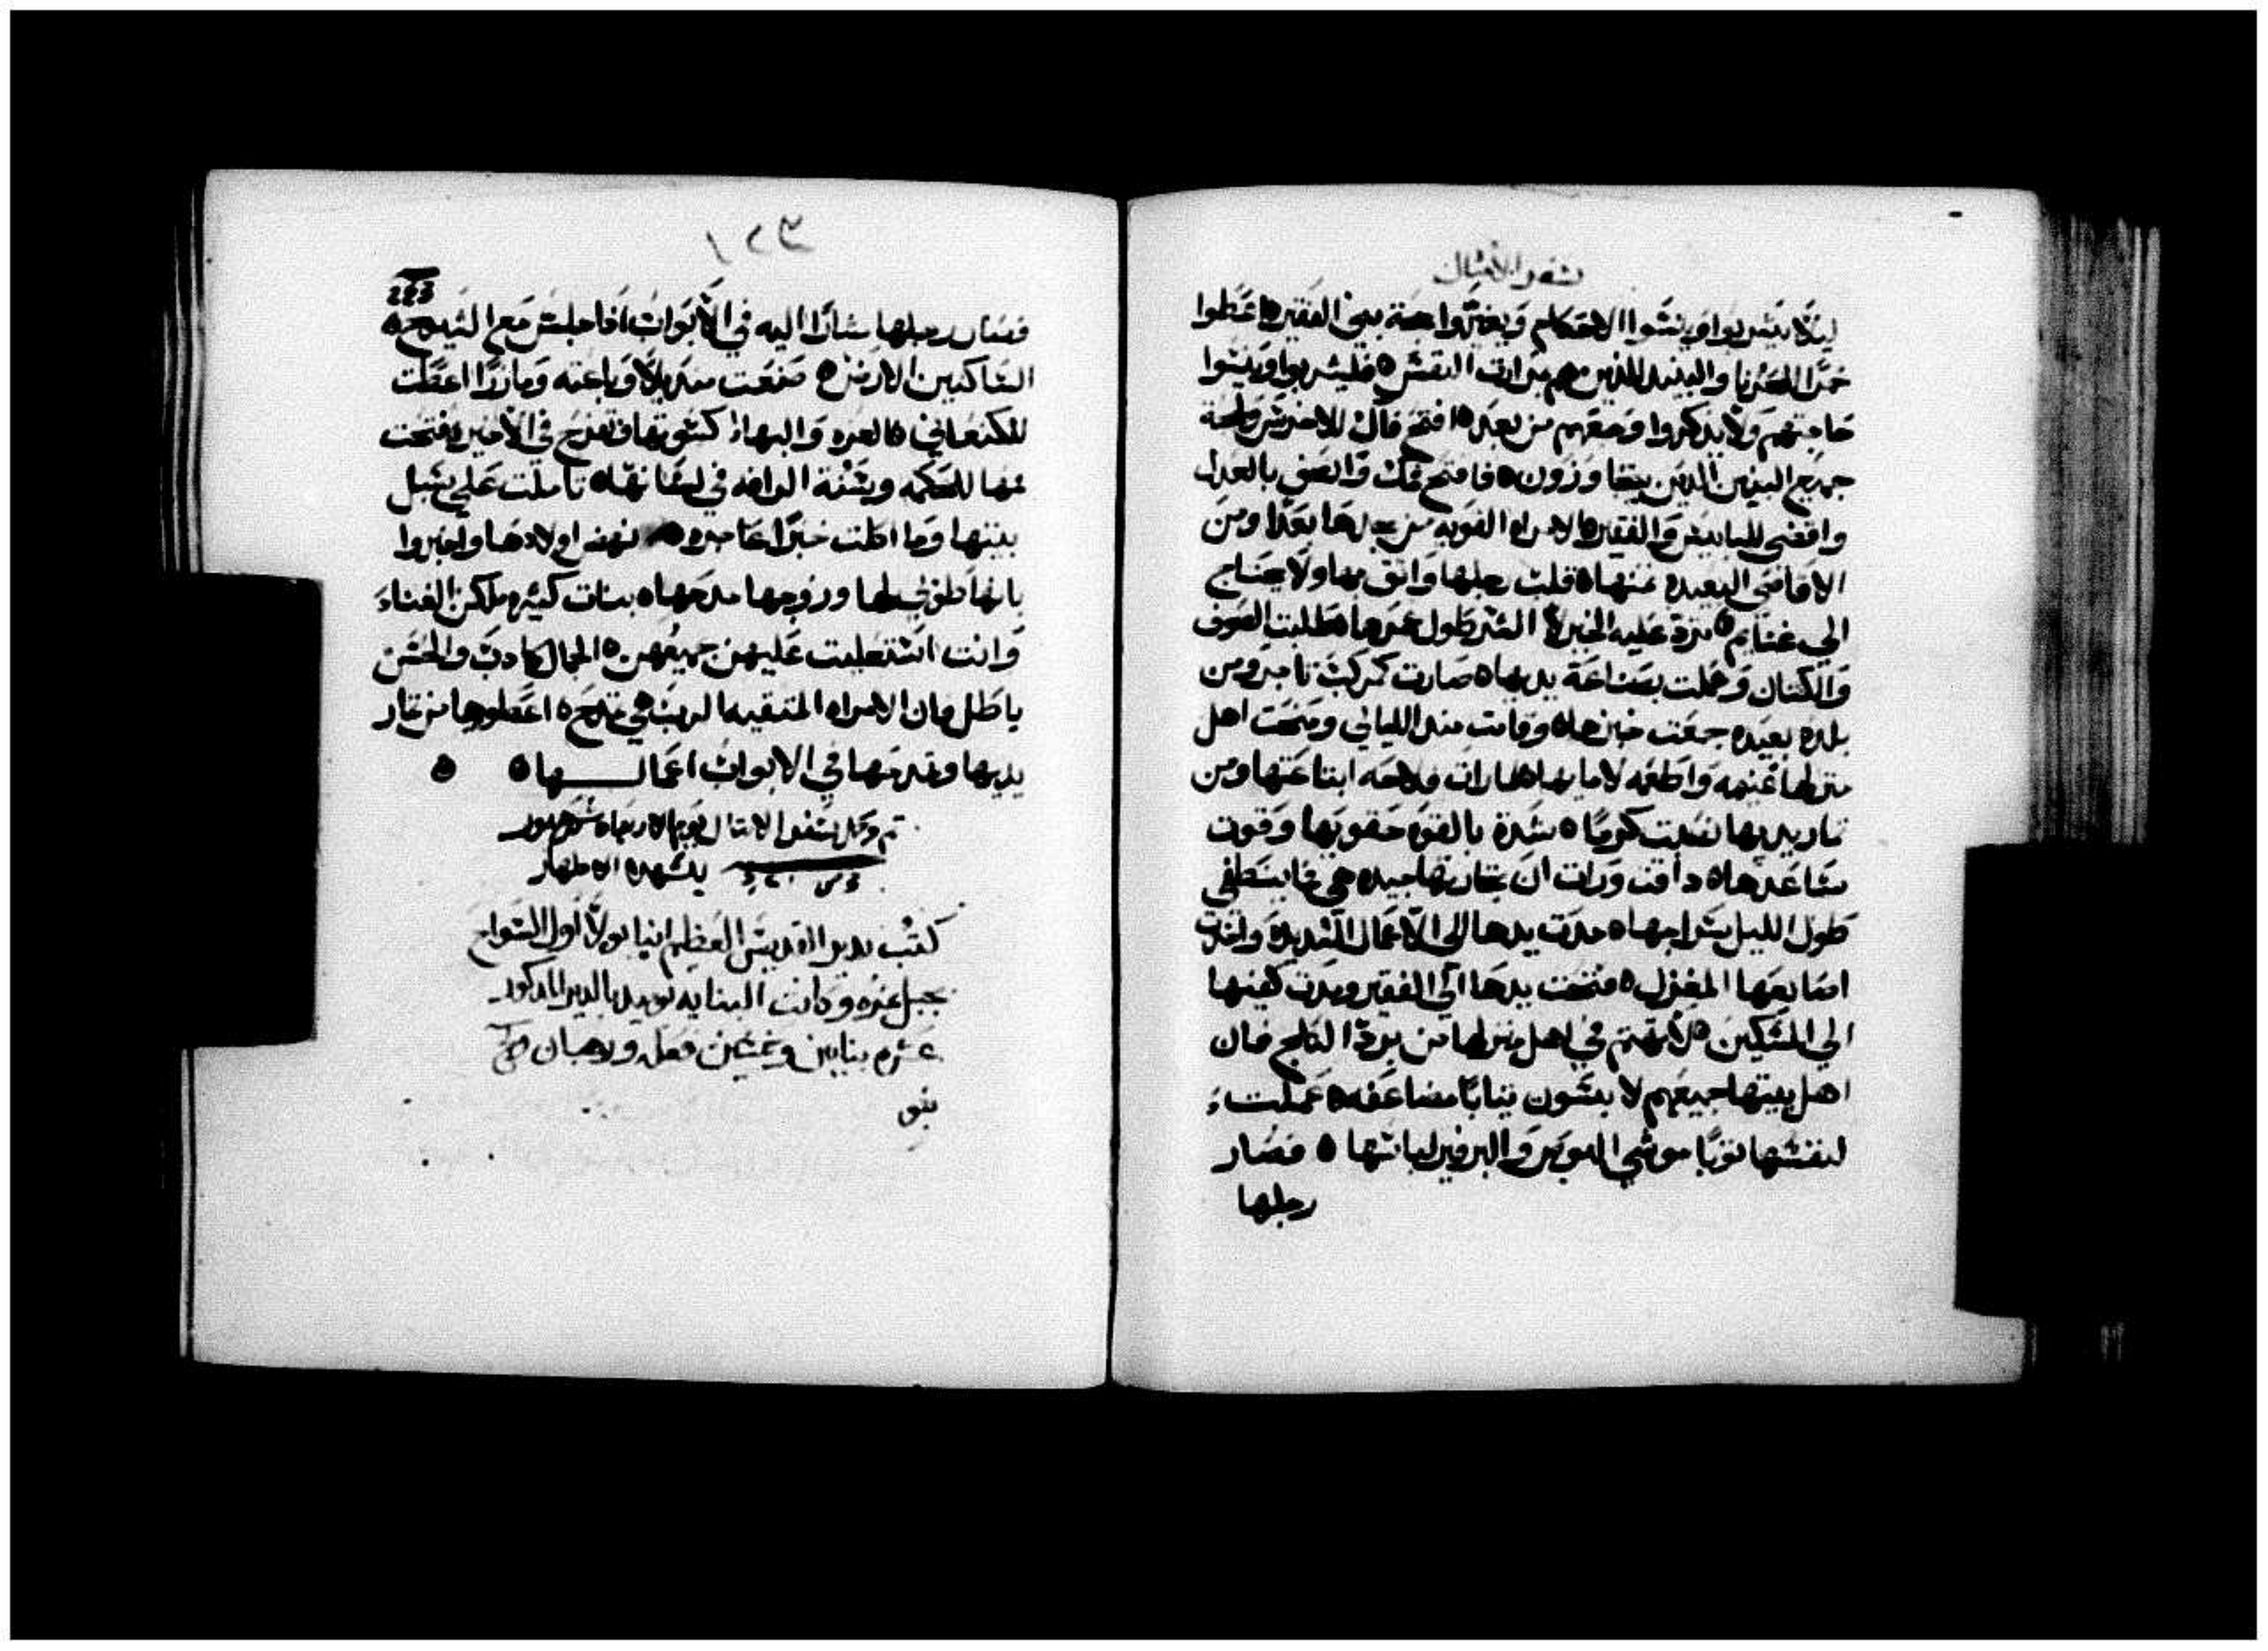 سفر الأمثال
ليلا يشربوا وينسوا الاحكام ويغيروا حجة بني الفقير ٥ اعطوا
خمرًا للحزنا والنبيذ للذين هم بمرارت النفس ٥ فليشربوا وينسوا
حاجتهم ولا يذكروا وجعهم من بعد ٥ افتح فاك للاخرس ولحجة
جميع البنين الذين يتجاوزون ٥ فافتح فمك واقضي بالعدل
واقضي للبايس والفقير ٥ الامراه القويه من يجدها بعدًا ومن
الاقاصي البعيده ثمنها ٥ قلب رجلها واثق بها ولا يحتاج
الي غنايم ٥ تردّ عليه الخير لا الشر طول عمرها ٥ طلبت الصوف
والكتان وعملت بصناعة يديها ٥ صارت كمركب تاجر ومن
بلده بعيده جمعت خبزها ٥ وقامت منذ الليالي ومنحت اهل
منزلها غنيمه واطعمه لامايها ٥ رات فلاحه ابتاعتها ومن
ثمار يديها نصبت كرمًا ٥ شدة بالقوه حقويها وقوت
ساعدها ٥ داقت ورات ان تجارتها جيده هي فما ينطفي
طول الليل سراجها ٥ مدت يدها الي الاعمال الشديدة واخدت
اصابعها المغزل ٥ فتحت يدها الي الفقير ومدت كفيها
الي المسكين ٥ لا تهتم في اهل منزلها من برد الثلج فان
اهل بيتها جميعهم لابسون ثيابًا مضاعفه ٥ عملت
لنفسها ثوبًا موشي البوص والبرفير لباسها ٥ فصار
رجلها
223
فصار رجلها مشارًا اليه في الابواب اذا جلس مع الشيوخ
الساكنين الارض ٥ صنعت منديلًا وباعته ومازرًا اعطت
للكنعاني ٥ العزه والبهاء كسوتها وتفرح في الاخير ٥ فتحت
فمها للحكمه وسنة الرافه في لسانها ٥ تاملت علي سبل
بيتها وما اكلت خبزًا عاجزه ٥ نهض اولادها واخبروا
بانها طوبي لها وزوجها مدحها ٥ بنات كثيره ملكن الغناء
وانت استعليت عليهن جميعهن ٥ الجمال كادب والحسن
باطل فان الامراه المتقيه الرب هي تمدح ٥ اعطوها من ثمار
يديها وتمدحها في الابواب اعمالـــها ٥ ٥
تم وكمل سفر الامثال يوم الاربعاء شهر هتور
للشهدا الاطهار
كتب بدير القديس العظيم انبا بولا اول السواح
بجبل عزبه وكانت البنايه يوميد بالدير المدكور